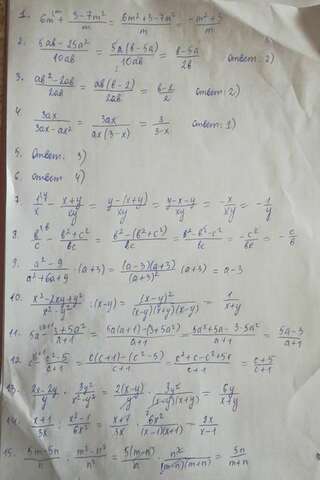 1. 6m + (3-7m²)/m = (6m²+3-7m²)/m = (-m²+3)/m
2. (5ab-25a²)/10ab = 5a(b-5a)/10ab = (b-5a)/2b ответ: 2)
3. (ab²-2ab)/2ab = ab(b-2)/2ab = (b-2)/2 ответ: 2)
4. 3ax/(3ax-ax²) = 3ax/ax(3-x) = 3/(3-x) ответ: 1)
5. ответ: 3)
6. ответ 4)
7. 1/x - (x+y)/xy = (y-(x+y))/xy = (y-x-y)/xy = -x/xy = -1/y
8. b/c - (b²+c²)/bc = (b²-(b²+c²))/bc = (b²-b²-c²)/bc = -c²/bc = -c/b
9. (a²-9)/(a²+6a+9) · (a+3) = (a-3)(a+3)/(a+3)² · (a+3) = a-3
10. (x²-2xy+y²)/(x²-y²) : (x-y) = (x-y)²/(x-y)(x+y)(x-y) = 1/(x+y)
11. 5a - (3+5a²)/(a+1) = (5a(a+1)-(3+5a²))/(a+1) = (5a²+5a-3-5a²)/(a+1) = (5a-3)/(a+1)
12. c - (c²-5)/(c+1) = (c(c+1)-(c²-5))/(c+1) = (c²+c-c²+5)/(c+1) = (c+5)/(c+1)
13. (2x-2y)/y · 3y²/(x²-y²) = 2(x-y)/y · 3y²/(x-y)(x+y) = 6y/(x+y)
14. (x+1)/3x : (x²-1)/6x² = (x+1)/3x · 6x²/(x-1)(x+1) = 2x/(x-1)
15. (5m-5n)/n : (m²-n²)/n² = 5(m-n)/n · n²/(m-n)(m+n) = 5n/(m+n)